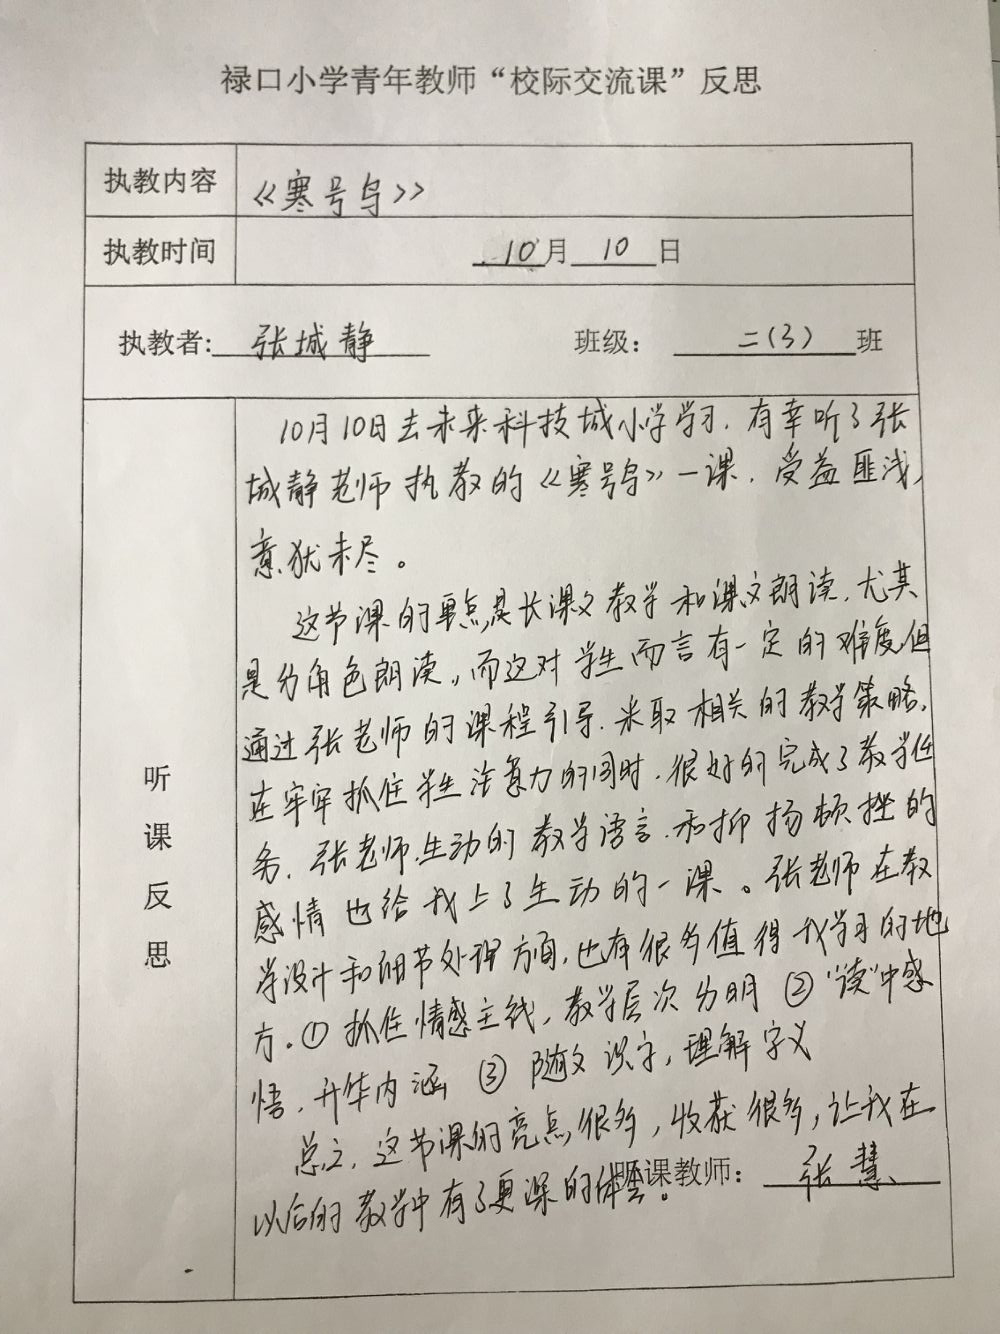 禄口小学青年教师“校际交流课”反思
执教内容 《寒号鸟》
执教时间 10月10日
执教者:张城静 班级：二(3)班
听课反思
10月10日去未来科技城小学学习，有幸听了张
城静老师执教的《寒号鸟》一课，受益匪浅，
意犹未尽。
这节课的重点是长课文教学和课文朗读，尤其
是分角色朗读，而这对学生而言有一定的难度但
通过张老师的课程引导，采取相关的教学策略，
在牢牢抓住学生注意力的同时，很好的完成了教学任
务，张老师生动的教学语言和抑扬顿挫的
感情也给我上了生动的一课。张老师在教
学设计和细节处理方面，也有很多值得我学习的地
方。①抓住情感主线，教学层次分明②“读”中感
悟，升华内涵③随文识字，理解字义
总之，这节课的亮点很多，收获很多，让我在
以后的教学中有了更深的体会。
听课教师：张慧